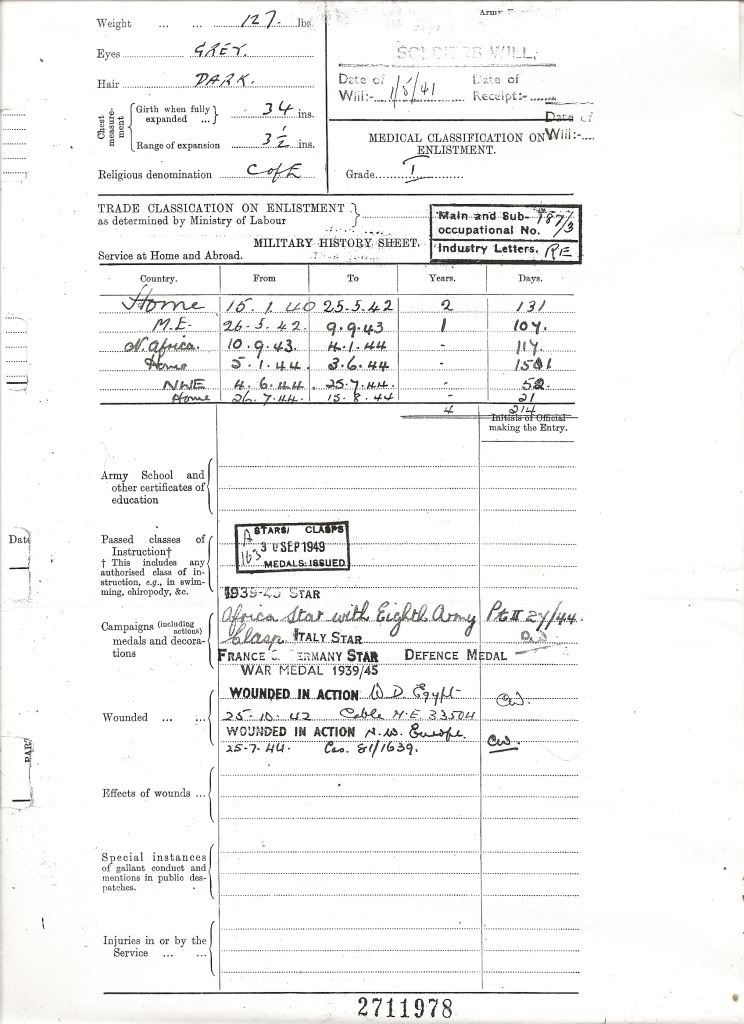 Weight ... ... 127. lbs.
Army
Eyes GREY.
SOLDIER'S WILL.
Hair DARK.
Date of Will:- 1/5/41 Date of Receipt:-
Chest measurement
Girth when fully expanded ... 34 ins.
Date of Will:-
Range of expansion 3½ ins.
MEDICAL CLASSIFICATION ON ENLISTMENT.
Religious denomination C of E
Grade I
TRADE CLASSICATION ON ENLISTMENT
as determined by Ministry of Labour
Main and Sub-occupational No. 187/3
Industry Letters. RE
MILITARY HISTORY SHEET.
Service at Home and Abroad.
Country. From To Years. Days.
Home 15.1.40 25.5.42 2 131
M.E. 26.5.42. 9.9.43 1 107.
N. Africa. 10.9.43. 4.1.44 - 117.
Home 5.1.44 3.6.44 - 151
NWE 4.6.44 25.7.44. - 52.
Home 26.7.44. 15.8.44 - 21
4 214
Initials of Official making the Entry.
Army School and
other certificates of
education
Date
Passed classes of
Instruction†
† This includes any
authorised class of in-
struction, e.g., in swim-
ming, chiropody, &c.
STARS/ CLASPS
A 163
30 SEP 1949
MEDALS ISSUED
1939-45 STAR
Campaigns (including actions)
medals and decora-
tions
Africa Star with Eighth Army Pt II 27/44.
Clasp ITALY STAR
FRANCE & GERMANY STAR DEFENCE MEDAL
WAR MEDAL 1939/45
WOUNDED IN ACTION W.D. Egypt
Wounded ... ...
25-10-42 Cable M.E. 33504
WOUNDED IN ACTION N.W. Europe.
25-7-44. Cas. 81/1639.
Effects of wounds ...
Special instances
of gallant conduct and
mentions in public des-
patches.
Injuries in or by the
Service ... ...
PAR
2711978